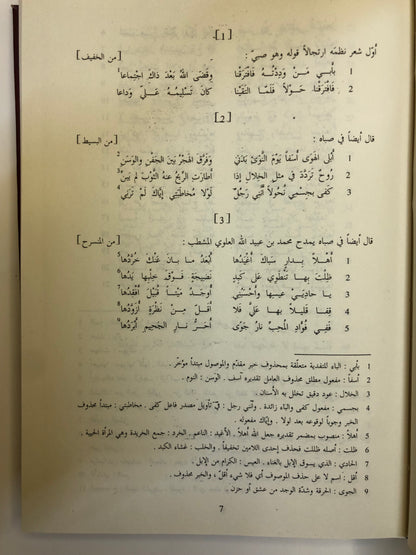 [1]
أوّل شعر نظمه ارتجالاً قوله وهو صبيّ : [من الخفيف]
1 بِأَبي مَنْ وَدِدْتُهُ فَافْتَرَقْنا وَقَضَى اللهُ بَعْدَ ذاكَ اجْتِماعا¹
2 فَافْتَرَقْنا حَوْلاً فَلَمّا التَقَيْنا كانَ تَسْلِيمُهُ عَلَيّ وَداعا
[2]
قال أيضاً في صباه : [من البسيط]
1 أَبْلَى الهَوَى أَسَفاً يَوْمَ النَّوَى بَدَني وَفَرَّقَ الهَجْرُ بَيْنَ الجَفْنِ وَالوَسَنِ²
2 رُوحٌ تَرَدَّدَ في مثلِ الخِلالِ إذا أَطارَتِ الرّيحُ عنهُ الثّوْبَ لم يَبِنِ³
3 كَفَى بجِسْمي نُحُولاً أنّني رَجُلٌ لَوْلا مُخاطَبَتي إيّاكَ لَمْ تَرَني⁴
[3]
قال أيضاً في صباه يمدح محمد بن عبيد الله العلوي المشطب : [من المنسرح]
1 أَهْلاً بِدارٍ سَبَاكَ أَغْيَدُها أَبْعَدُ ما بانَ عَنْكَ خُرَّدُها⁵
2 ظَلْتَ بها تَنْطَوي عَلى كَبِدٍ نَضِيجَةٍ فَوْقَ خِلْبِها يَدُها⁶
3 يا حادِيَيْ عِيسِها وَأَحْسَبُني أُوجَدُ مَيْتاً قُبَيْلَ أَفْقِدُها⁷
4 قِفا قَليلاً بها عَلَيّ فَلا أَقَلَّ مِنْ نَظْرَةٍ أُزَوَّدُها⁸
5 فَفي فُؤادِ المُحِبّ نارُ جَوًى أَحَرُّ نارِ الجَحيمِ أَبْرَدُها⁹
1 بأبي : الباء للتفدية متعلقة بمحذوف خبر مقدّم والموصول مبتدأ مؤخّر .
2 أسفاً : مفعول مطلق محذوف العامل تقديره آسف . الوسن : النوم .
3 الخلال : عود دقيق تخلل به الأسنان .
4 بجسمي : مفعول كفى والباء زائدة . وأنني رجل : في تأويل مصدر فاعل كفى . مخاطبتي : مبتدأ محذوف
الخبر وجوباً لوقوعه بعد لولا . وإيّاك مفعوله .
5 أهلاً : منصوب بمضمر تقديره جعل الله أهلاً . الأغيد : الناعم . الخرد : جمع الخريدة وهي المرأة الحيية .
6 ظلت : أصله ظللت فحذف إحدى اللامين تخفيفاً . والخلب : غشاء الكبد .
7 الحادي : الذي يسوق الإبل بالغناء . العيس : الكرام من الإبل .
8 أقل : اسم لا على حذف الموصوف أي فلا شيء أقلّ ، والخبر محذوف .
9 الجوى : الحرقة وشدّة الوجد من عشق أو حزن .
7